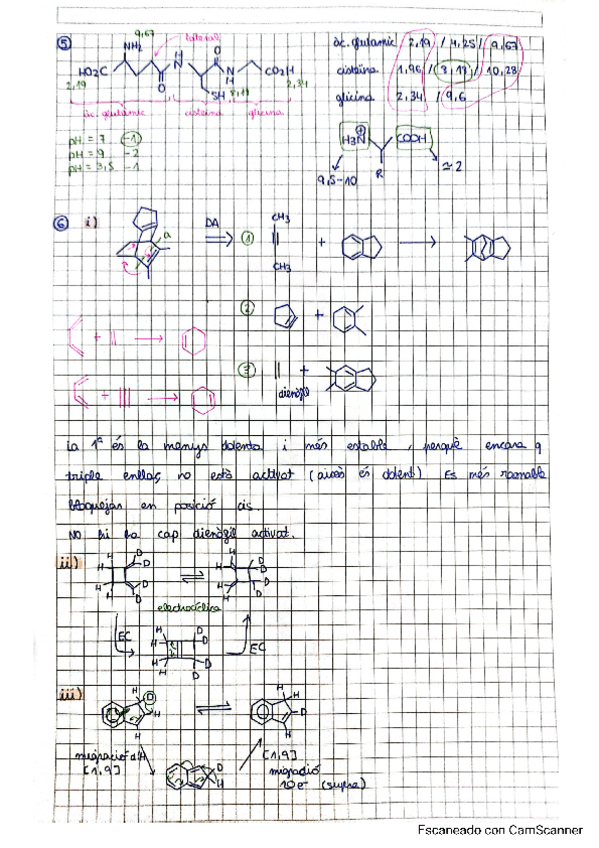 5
9,67
lateral
NH₂
HO₂C
2,19
O
H
N
O
N
H
8,18
SH
CO₂H
2,34
àc. glutàmic
cisteïna
glicina
àc. glutàmic 2,19 / 4,25 / 9,67
cisteïna 1,96 / 8,18 / 10,28
glicina 2,34 / 9,6
pH = 7 -1
pH = 9 -2
pH = 3,5 -1
H₃N
COOH
R
9,5-10
≃ 2
6 i)
a
DA
1
CH₃
CH₃
+
2
+
+
3
+
dienòfil
+
La 1ª és la menys dolenta i més estable, perquè encara q
triple enllaç, no està activat (això és dolent) Es més raonable
bloquejar en posició cis.
NO hi ha cap dienòfil activat.
ii)
H
H
H
H
D
D
D
D
H
H
H
H
D
D
D
D
electrocíclica
EC
H
H
H
H
D
D
D
D
EC
iii)
H
D
H
H
H
H
D
H
migració d'H
[1,9]
D
H
[1,9]
migració
10e⁻ (supra)
Escaneado con CamScanner